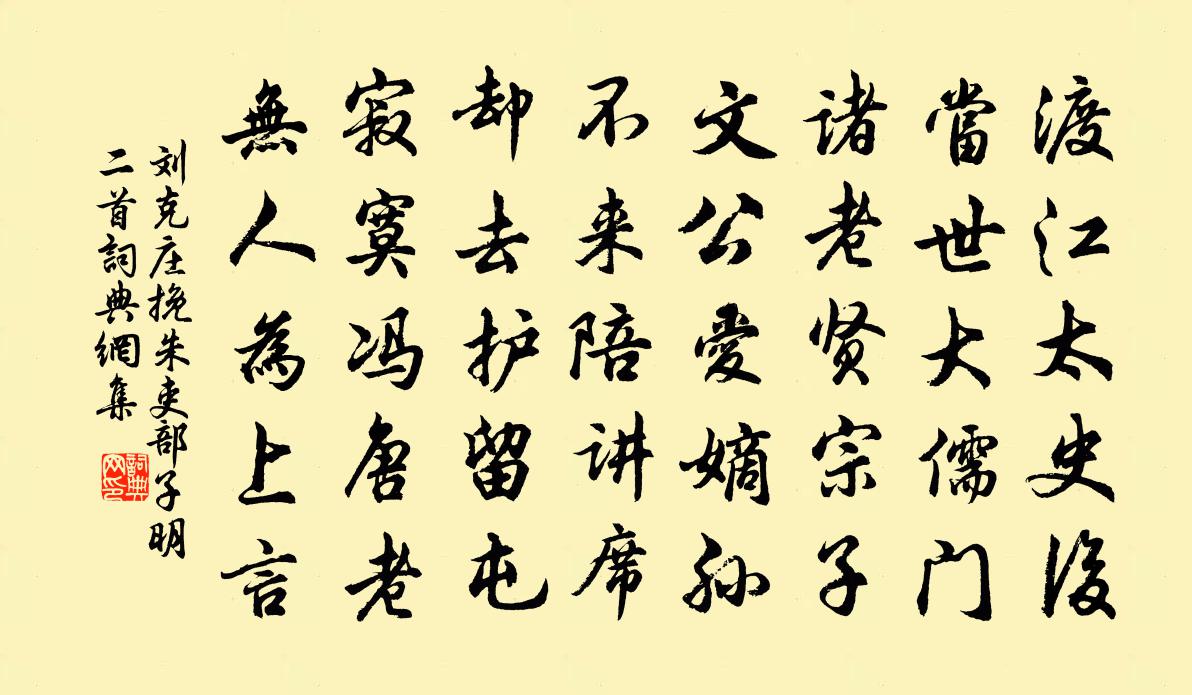 渡江太史後
當世大儒门
诸老贤宗子
文公愛嫡孙
不来陪讲席
却去护留屯
寂寞冯唐老
無人為上言
刘克庄挽朱吏部子明
二首詞典網集
詞典网印